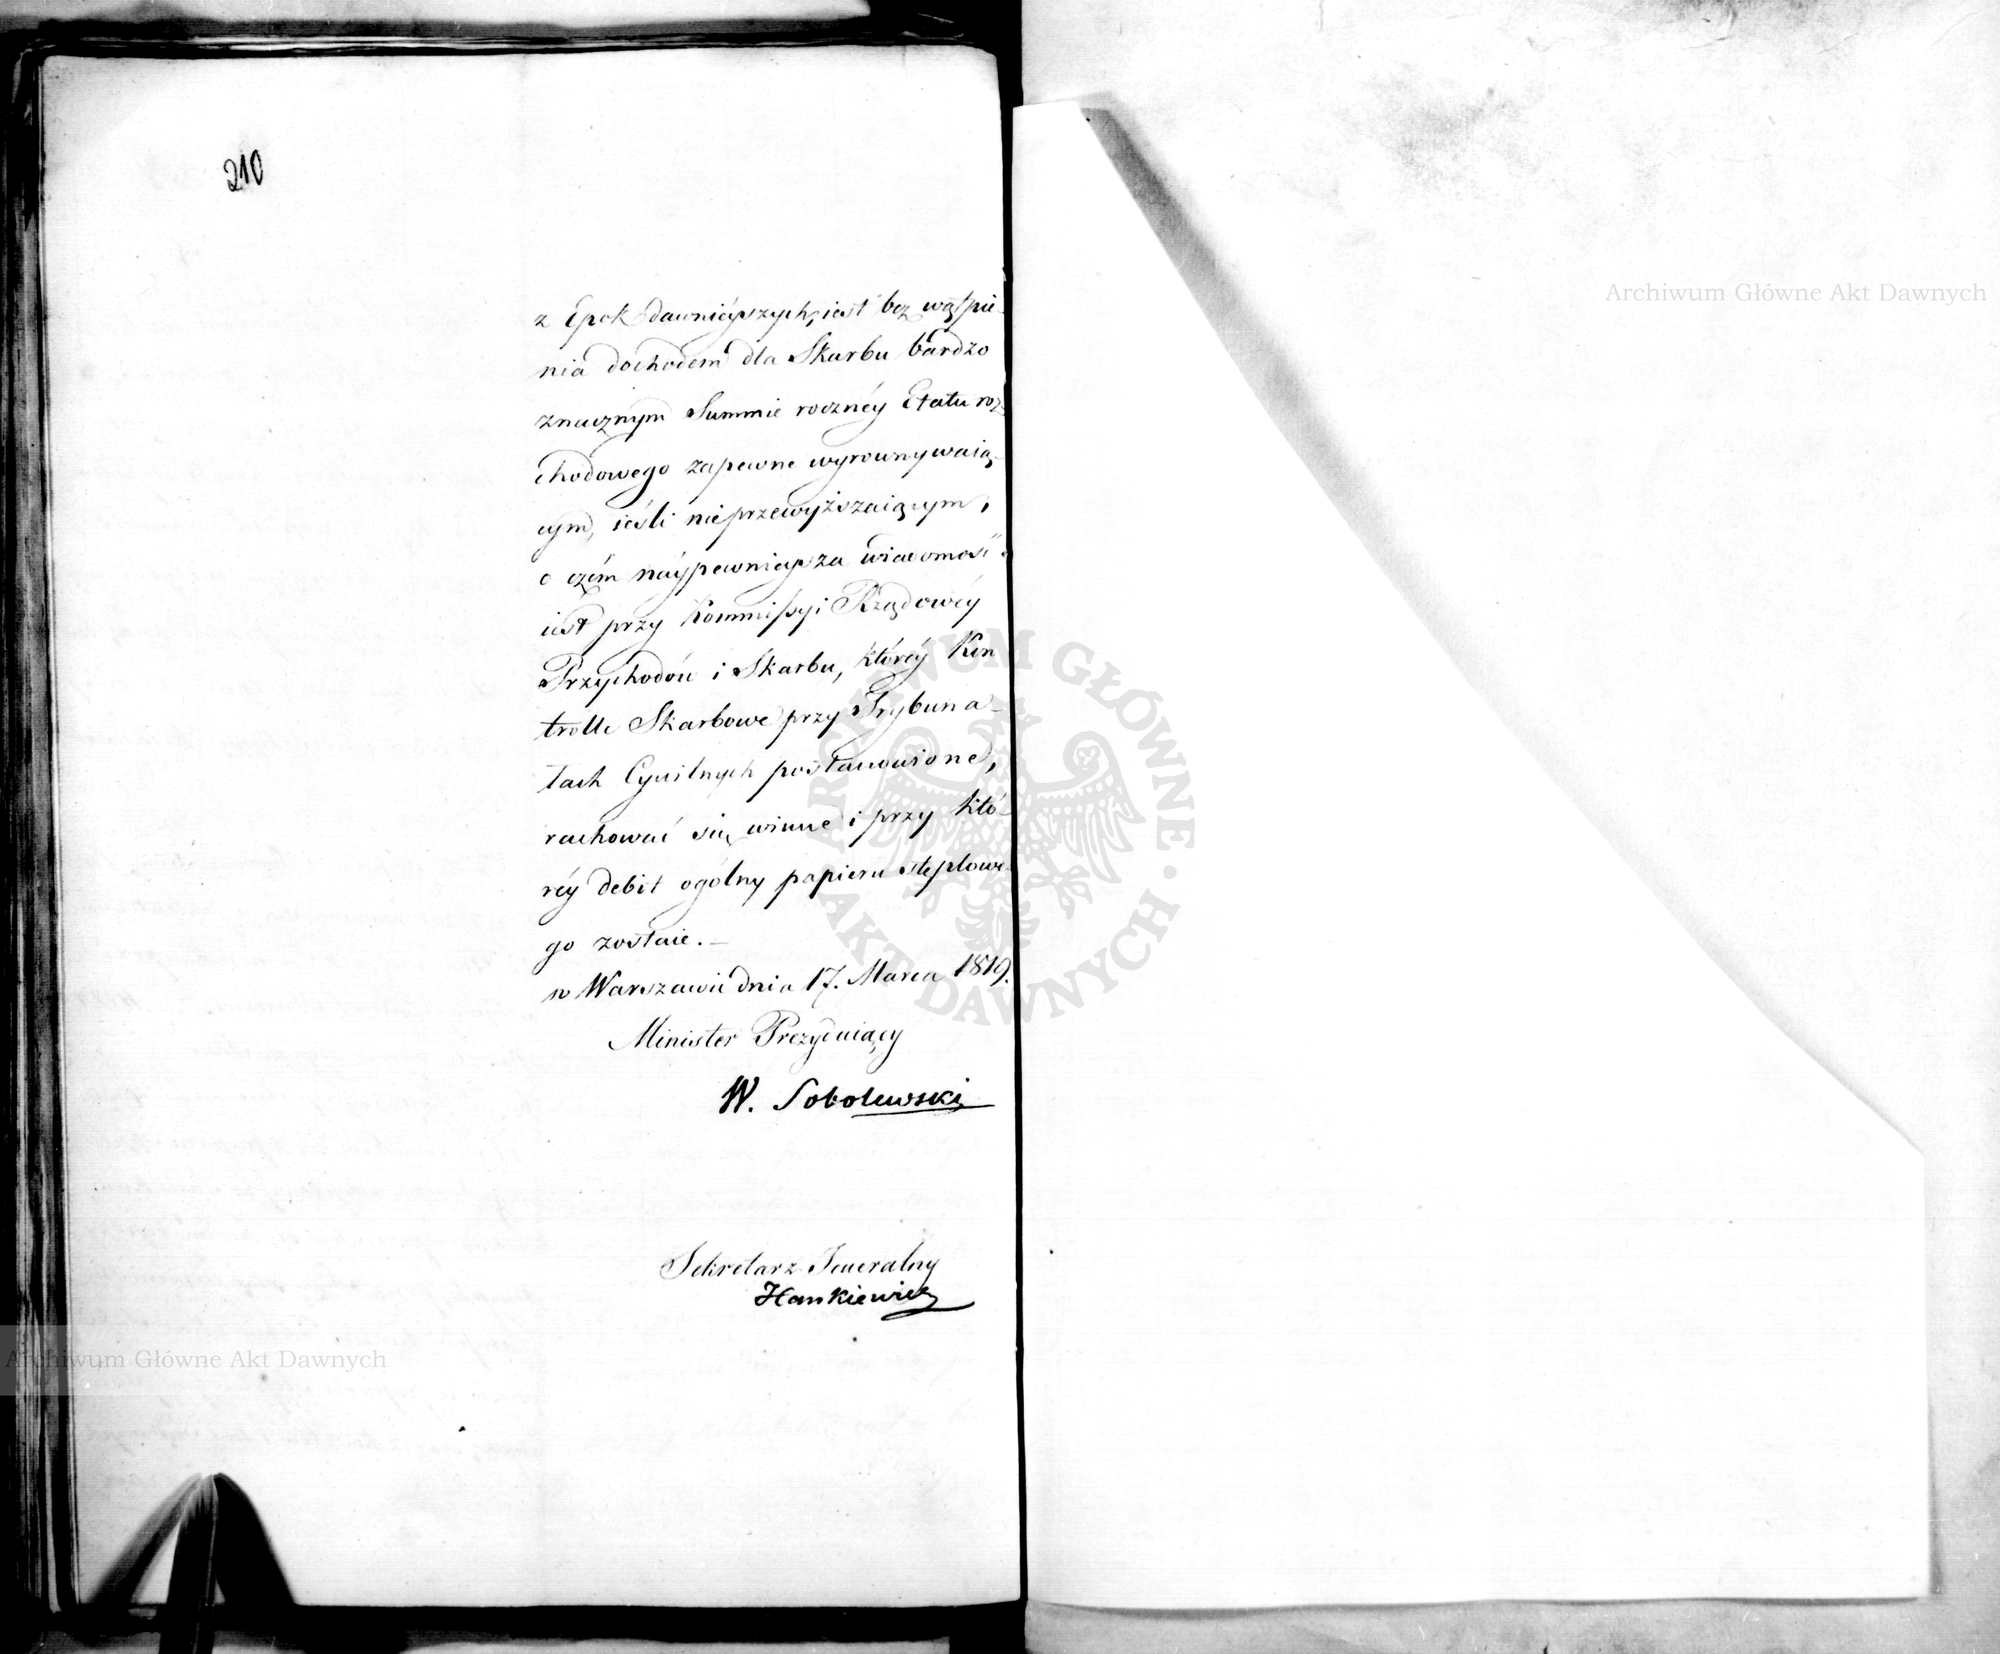 210
z Epok dawnieyszych, iest bez wątpie-
nia dochodem dla Skarbu bardzo
znacznym Summie rocznéy Etatu roz-
chodowego zapewne wyrownywaią-
cym, ieśli nieprzewyższaiącym,
o czém naypewnieysza wiadomość
iest przy Kommissyi Rządowéy
Przychodów i Skarbu, któréy Kon
trolle Skarbowe przy Trybuna-
łach Cywilnych postanowione,
rachować się winne i przy któ-
réy debit ogólny papieru stęplowe-
go zostaie. —
w Warszawie dnia 17. Marca 1819.
Minister Prezyduiący
W. Sobolewski
Sekretarz Jeneralny
Hankiewicz
Archiwum Główne Akt Dawnych
Archiwum Główne Akt Dawnych
ARCHIWUM GŁÓWNE · AKT DAWNYCH ·